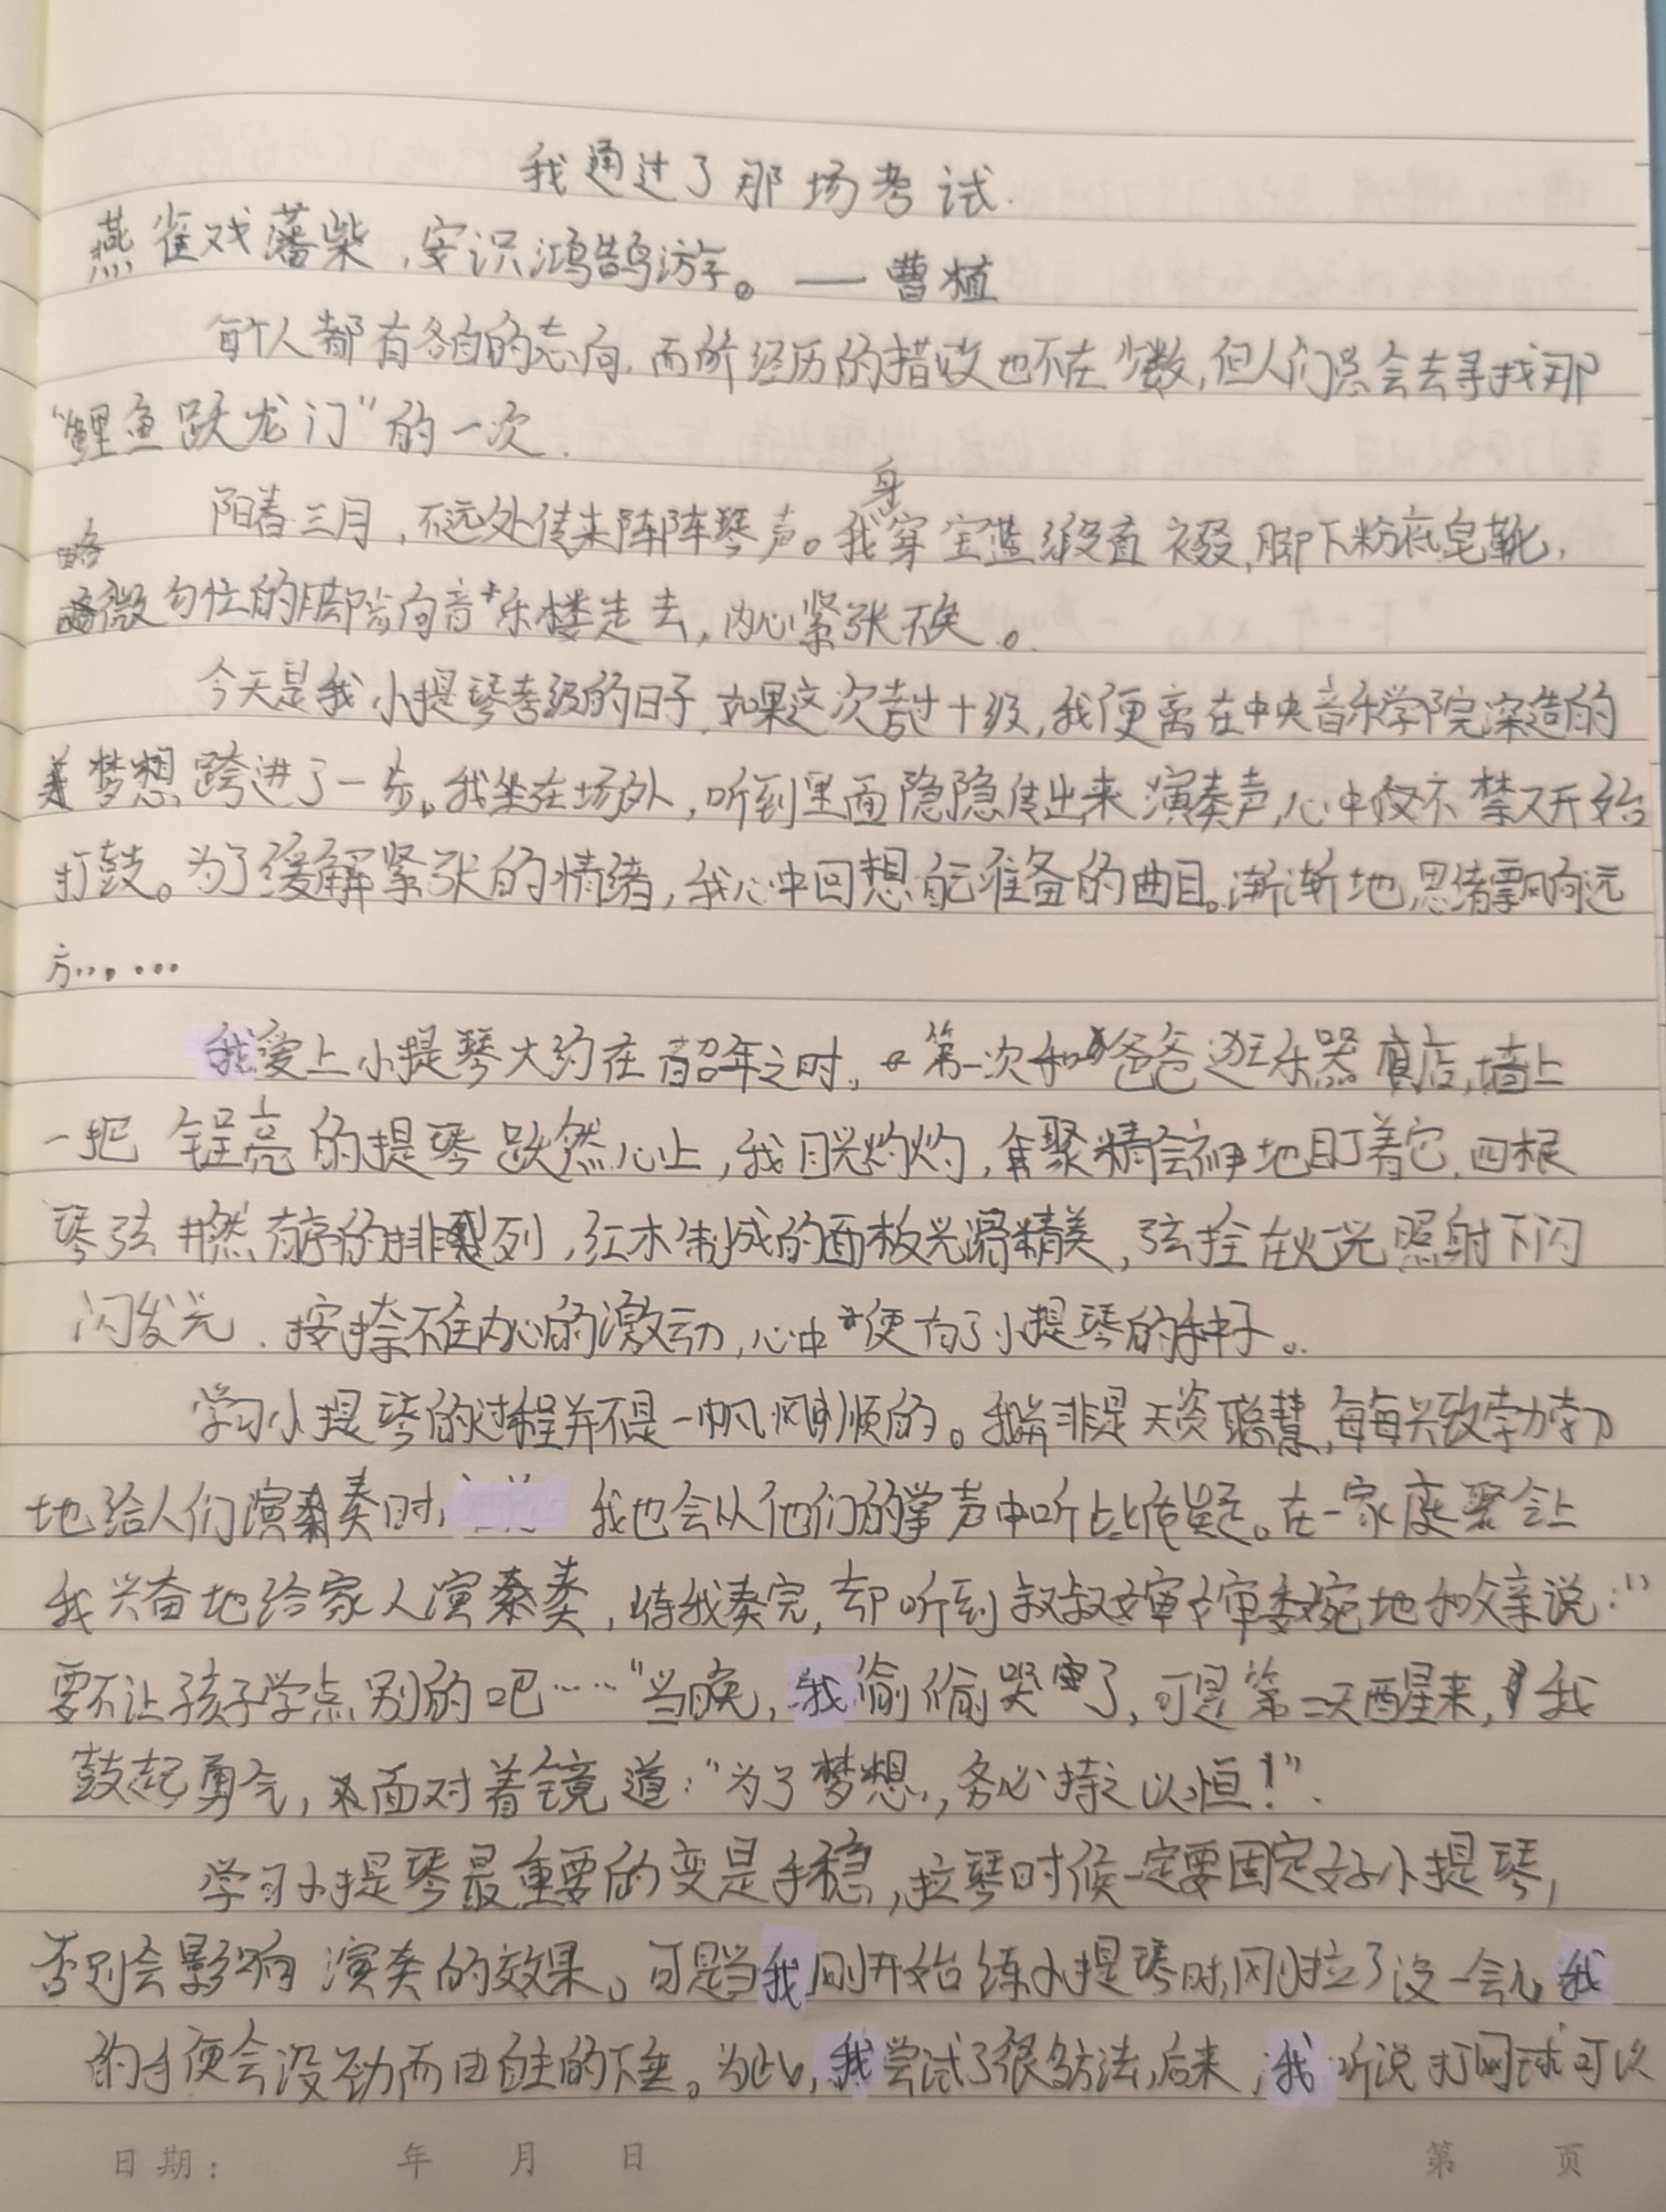 我通过了那场考试.
燕雀戏藩柴,安识鸿鹄游。——曹植
每个人都有各自的志向.而所经历的措败也不在少数,但人们总会去寻找那
“鲤鱼跃龙门”的一次.
阳春三月,不远处传来阵阵琴声。我身穿宝蓝缎直裰,脚下粉底皂靴,
略微匆忙的脚步向音乐楼走去,内心紧张不矣。
今天是我小提琴考级的日子.如果这次考过十级,我便离在中央音乐学院深造的
梦想跨进了一步。我坐在场外,听到里面隐隐传出来演奏声,心中不禁又开始
打鼓。为了缓解紧张的情绪,我心中回想自己准备的曲目。渐渐地,思绪飘向远
方……
我爱上小提琴大约在韶年之时。第一次和爸爸逛乐器店,墙上
一把锃亮的提琴跃然心上,我目光灼灼,聚精会神地盯着它.四根
琴弦井然有序的排列,红木制成的面板光滑精美,弦拴在火光照射下闪
闪发光.按捺不住内心的激动,心中便有了小提琴的种子。
学习小提琴的过程并不是一帆风顺的。我并非是天资聪慧,每每兴致勃勃
地给人们演奏时,我也会从他们的掌声中听出些质疑。在一家庭聚会上
我兴奋地给家人演奏,待我奏完,却听到叔叔婶婶委婉地和父亲说:“
要不让孩子学点别的吧……”当晚,我偷偷哭了,可是第二天醒来,我
鼓起勇气,面对着镜道:“为了梦想,务必持之以恒!”.
学习小提琴最重要的变是手稳,拉琴时候一定要固定好小提琴,
否则会影响演奏的效果。可是当我刚开始练小提琴时,刚拉了没一会儿,我
的手便会没劲而由自主的下垂。为此,我尝试了很多方法,后来,我听说打网球可以
日期: 年 月 日 第 页